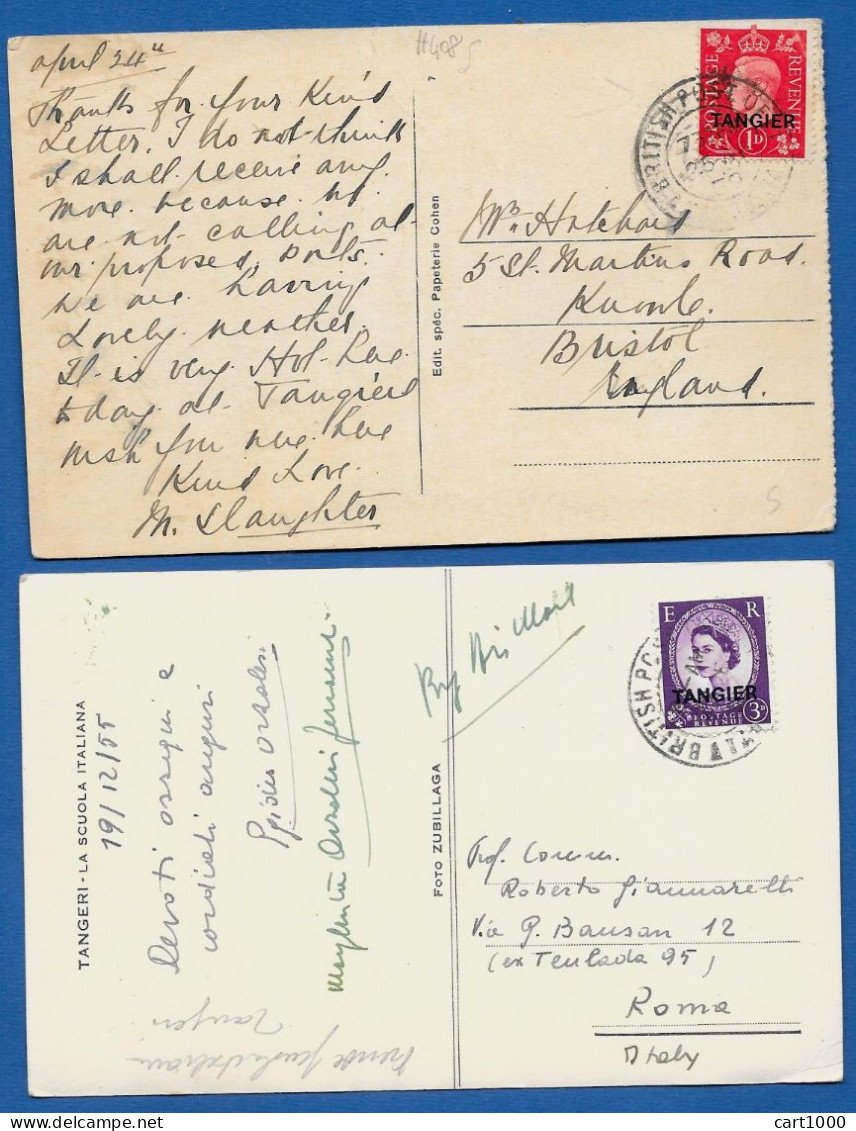 H408
S
April 24th
Thanks for your kind
Letter. I do not think
I shall receive any
more because we
are not calling at
our proposed Ports.
We are having
Lovely weather.
It is very Hot here
today at Tangiers
wish you were here
Kind Love.
M. Slaughter
Edit. spéc. Papeterie Cohen
POSTAGE
REVENUE
TANGIER
1D
BRITISH POST
Mrs. Hatchard
5 St. Martins Road.
Knowle.
Bristol
England.
S
TANGERI - LA SCUOLA ITALIANA
19/12/55
Devoti ossequi e
cordiali auguri
Tangeri
FOTO ZUBILLAGA
By Air Mail
E R
TANGIER
POSTAGE
REVENUE
3D
BRITISH PO
Prof. Comm.
Roberto Giannarelli
Via G. Bausan 12
(ex Teulada 95)
Roma
Italy
cart1000